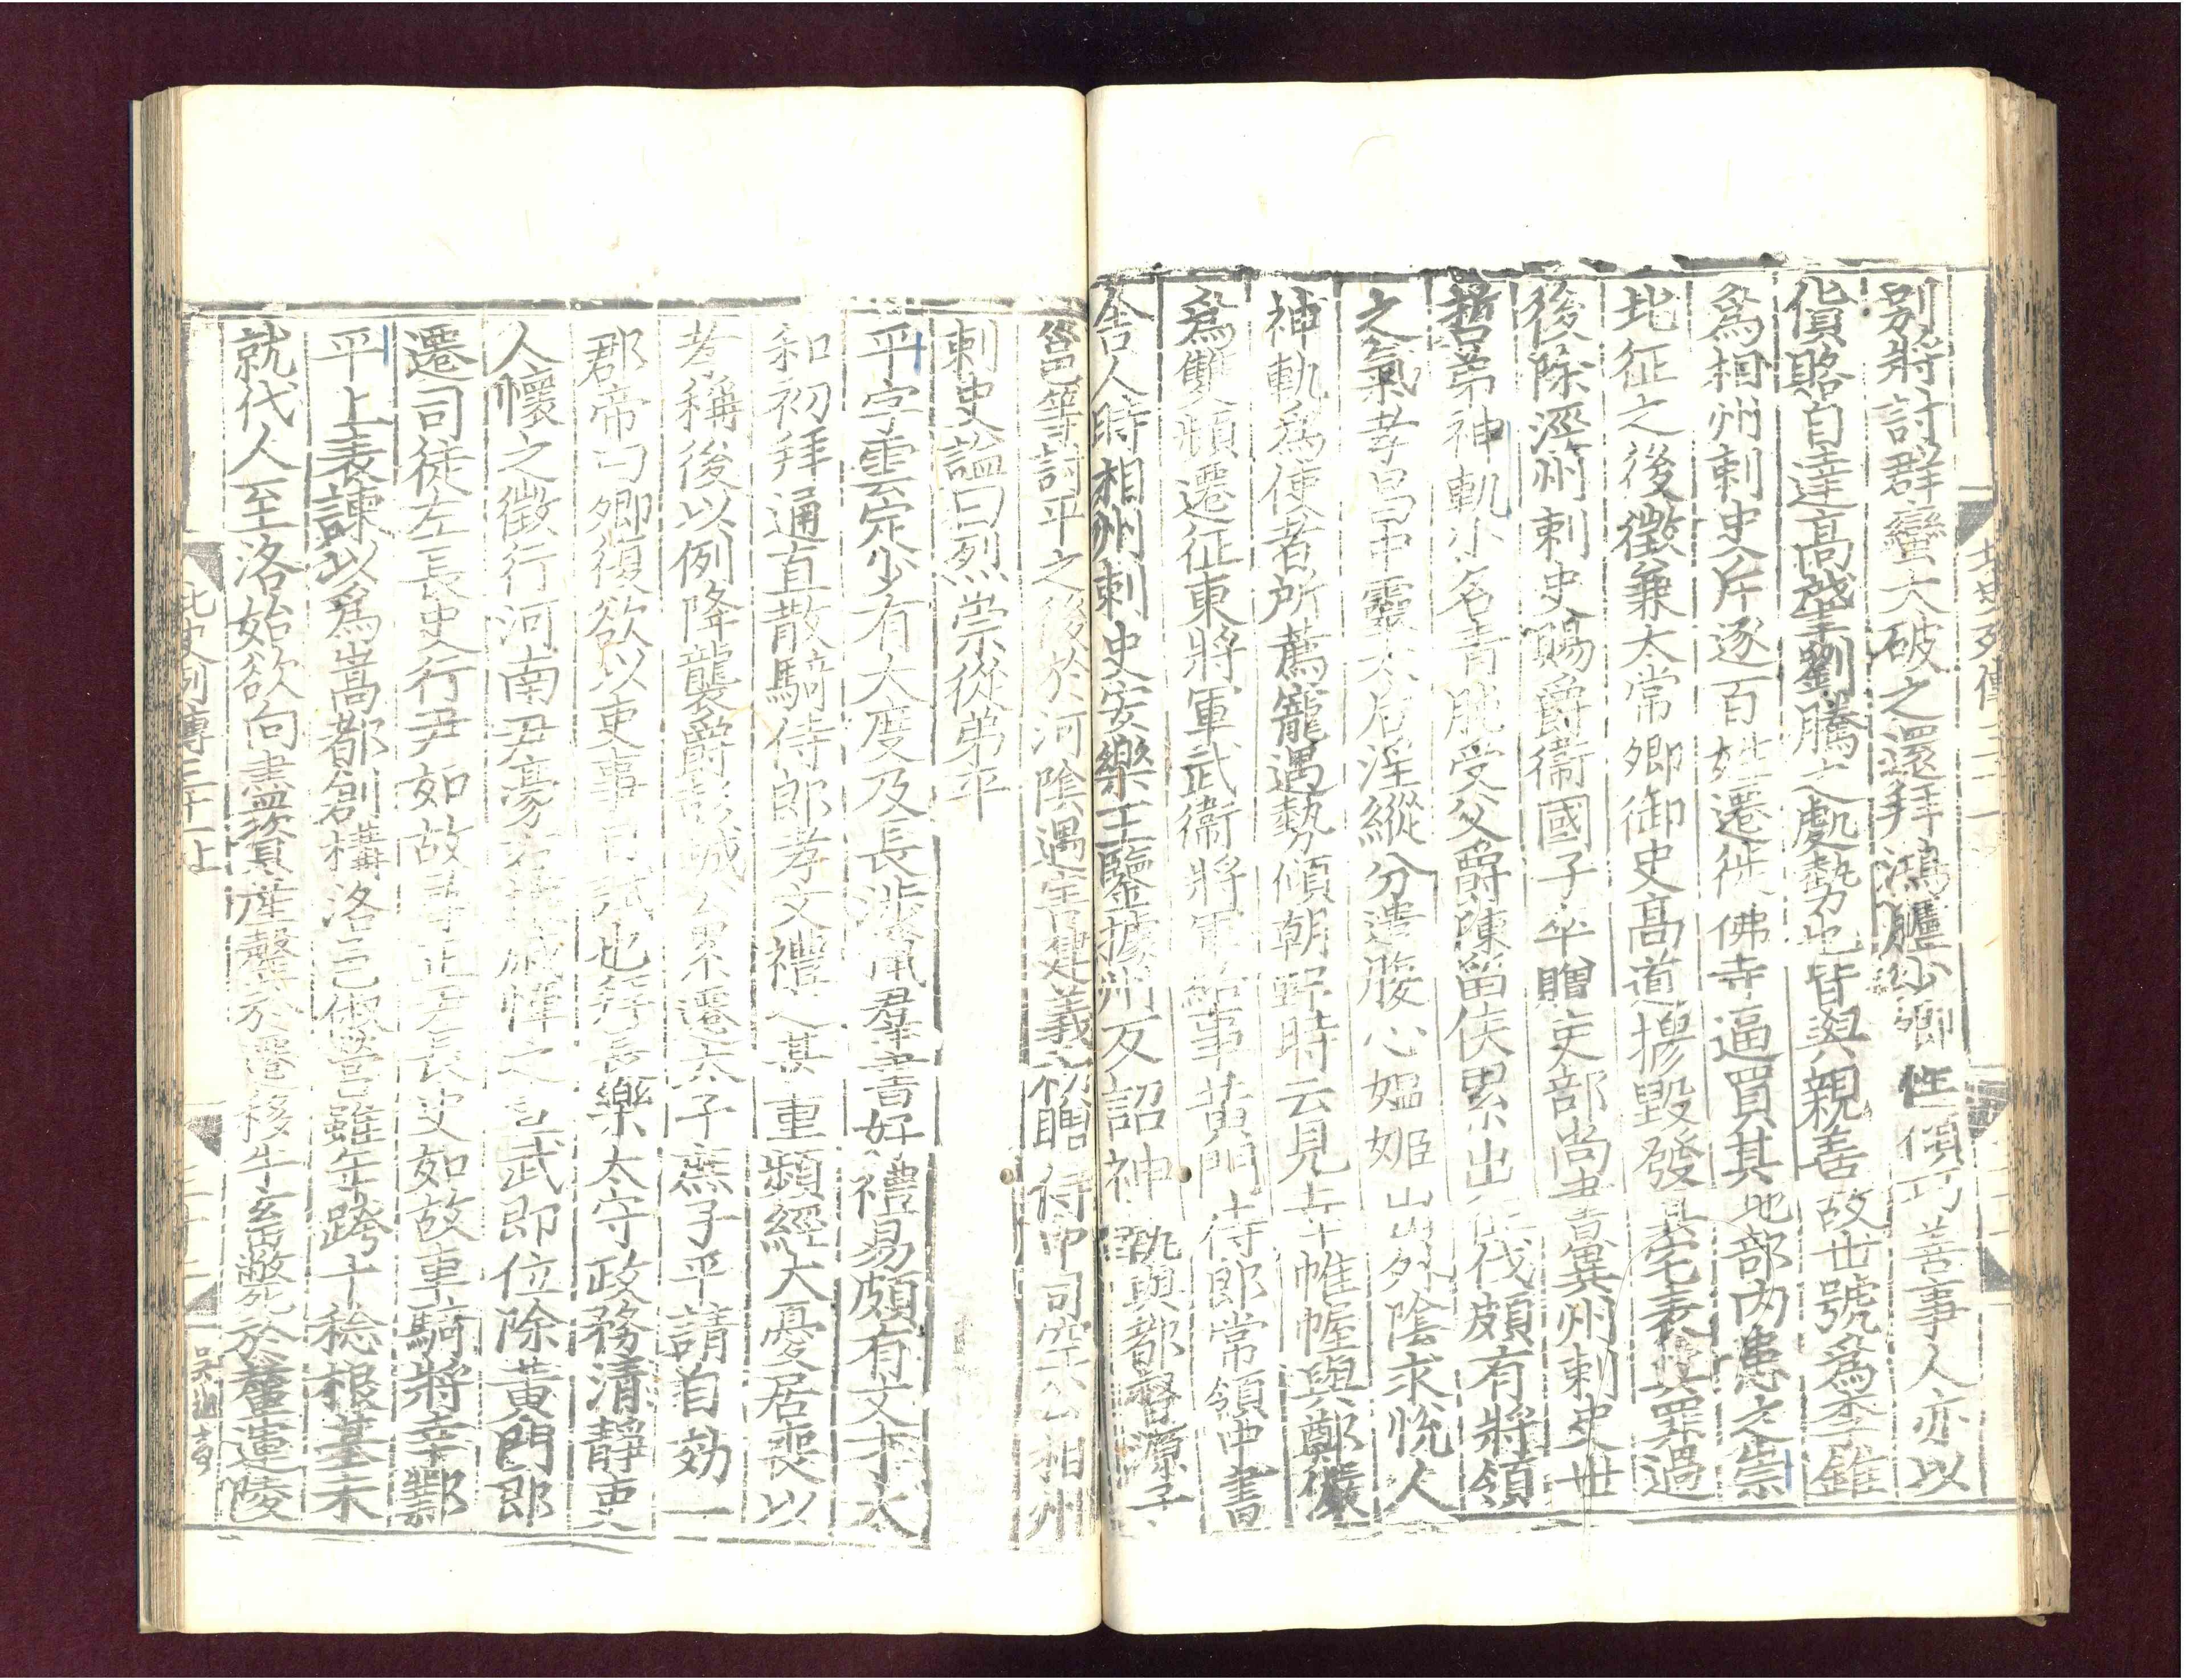 別將討群蠻大破之還拜鴻臚少卿性傾巧善事人亦以
貨賂自達高肇劉騰之處勢也皆與親善故世號爲李錐
爲相州刺史斥逐百姓遷徙佛寺逼買其地部内患之崇
北征之後徵兼太常卿御史高道穆毀發其宅表其罪過
後除涇州刺史賜爵衛國子卒贈吏部尚書冀州刺史世
哲弟神軌小名青肫受父爵陳留侯累出征伐頗有將領
之氣孝昌中靈太后淫縱分遣腹心媼姬出外陰求悅人
神軌爲使者所薦寵遇勢傾朝野時云見幸帷幄與鄭儼
爲雙頻遷征東將軍武衛將軍給事黃門侍郎常領中書
舍人時相州刺史安樂王鑒據州反詔神軌與都督源子
邕等討平之後於河隂遇害建義初贈侍中司空公相州
刺史謚曰烈崇從弟平
平字雲定少有大度及長涉獵群書好禮易頗有文才太
和初拜通直散騎侍郎孝文禮之甚重頻經大憂居喪以
孝稱後以例降襲爵彭城公累遷太子庶子平請自効一
郡帝曰卿復欲以吏事自試也拜長樂太守政務清靜吏
人懷之徵行河南尹豪右權戚憚之宣武即位除黃門郎
遷司徒左長史行尹如故尋正尹長史如故車騎將幸鄴
平上表諫以爲嵩都創構洛邑俶營雖年跨十稔根基未
就代人至洛始欲向盡資産罄於遷移牛畜斃於輦運陵
北史列傳三十一上